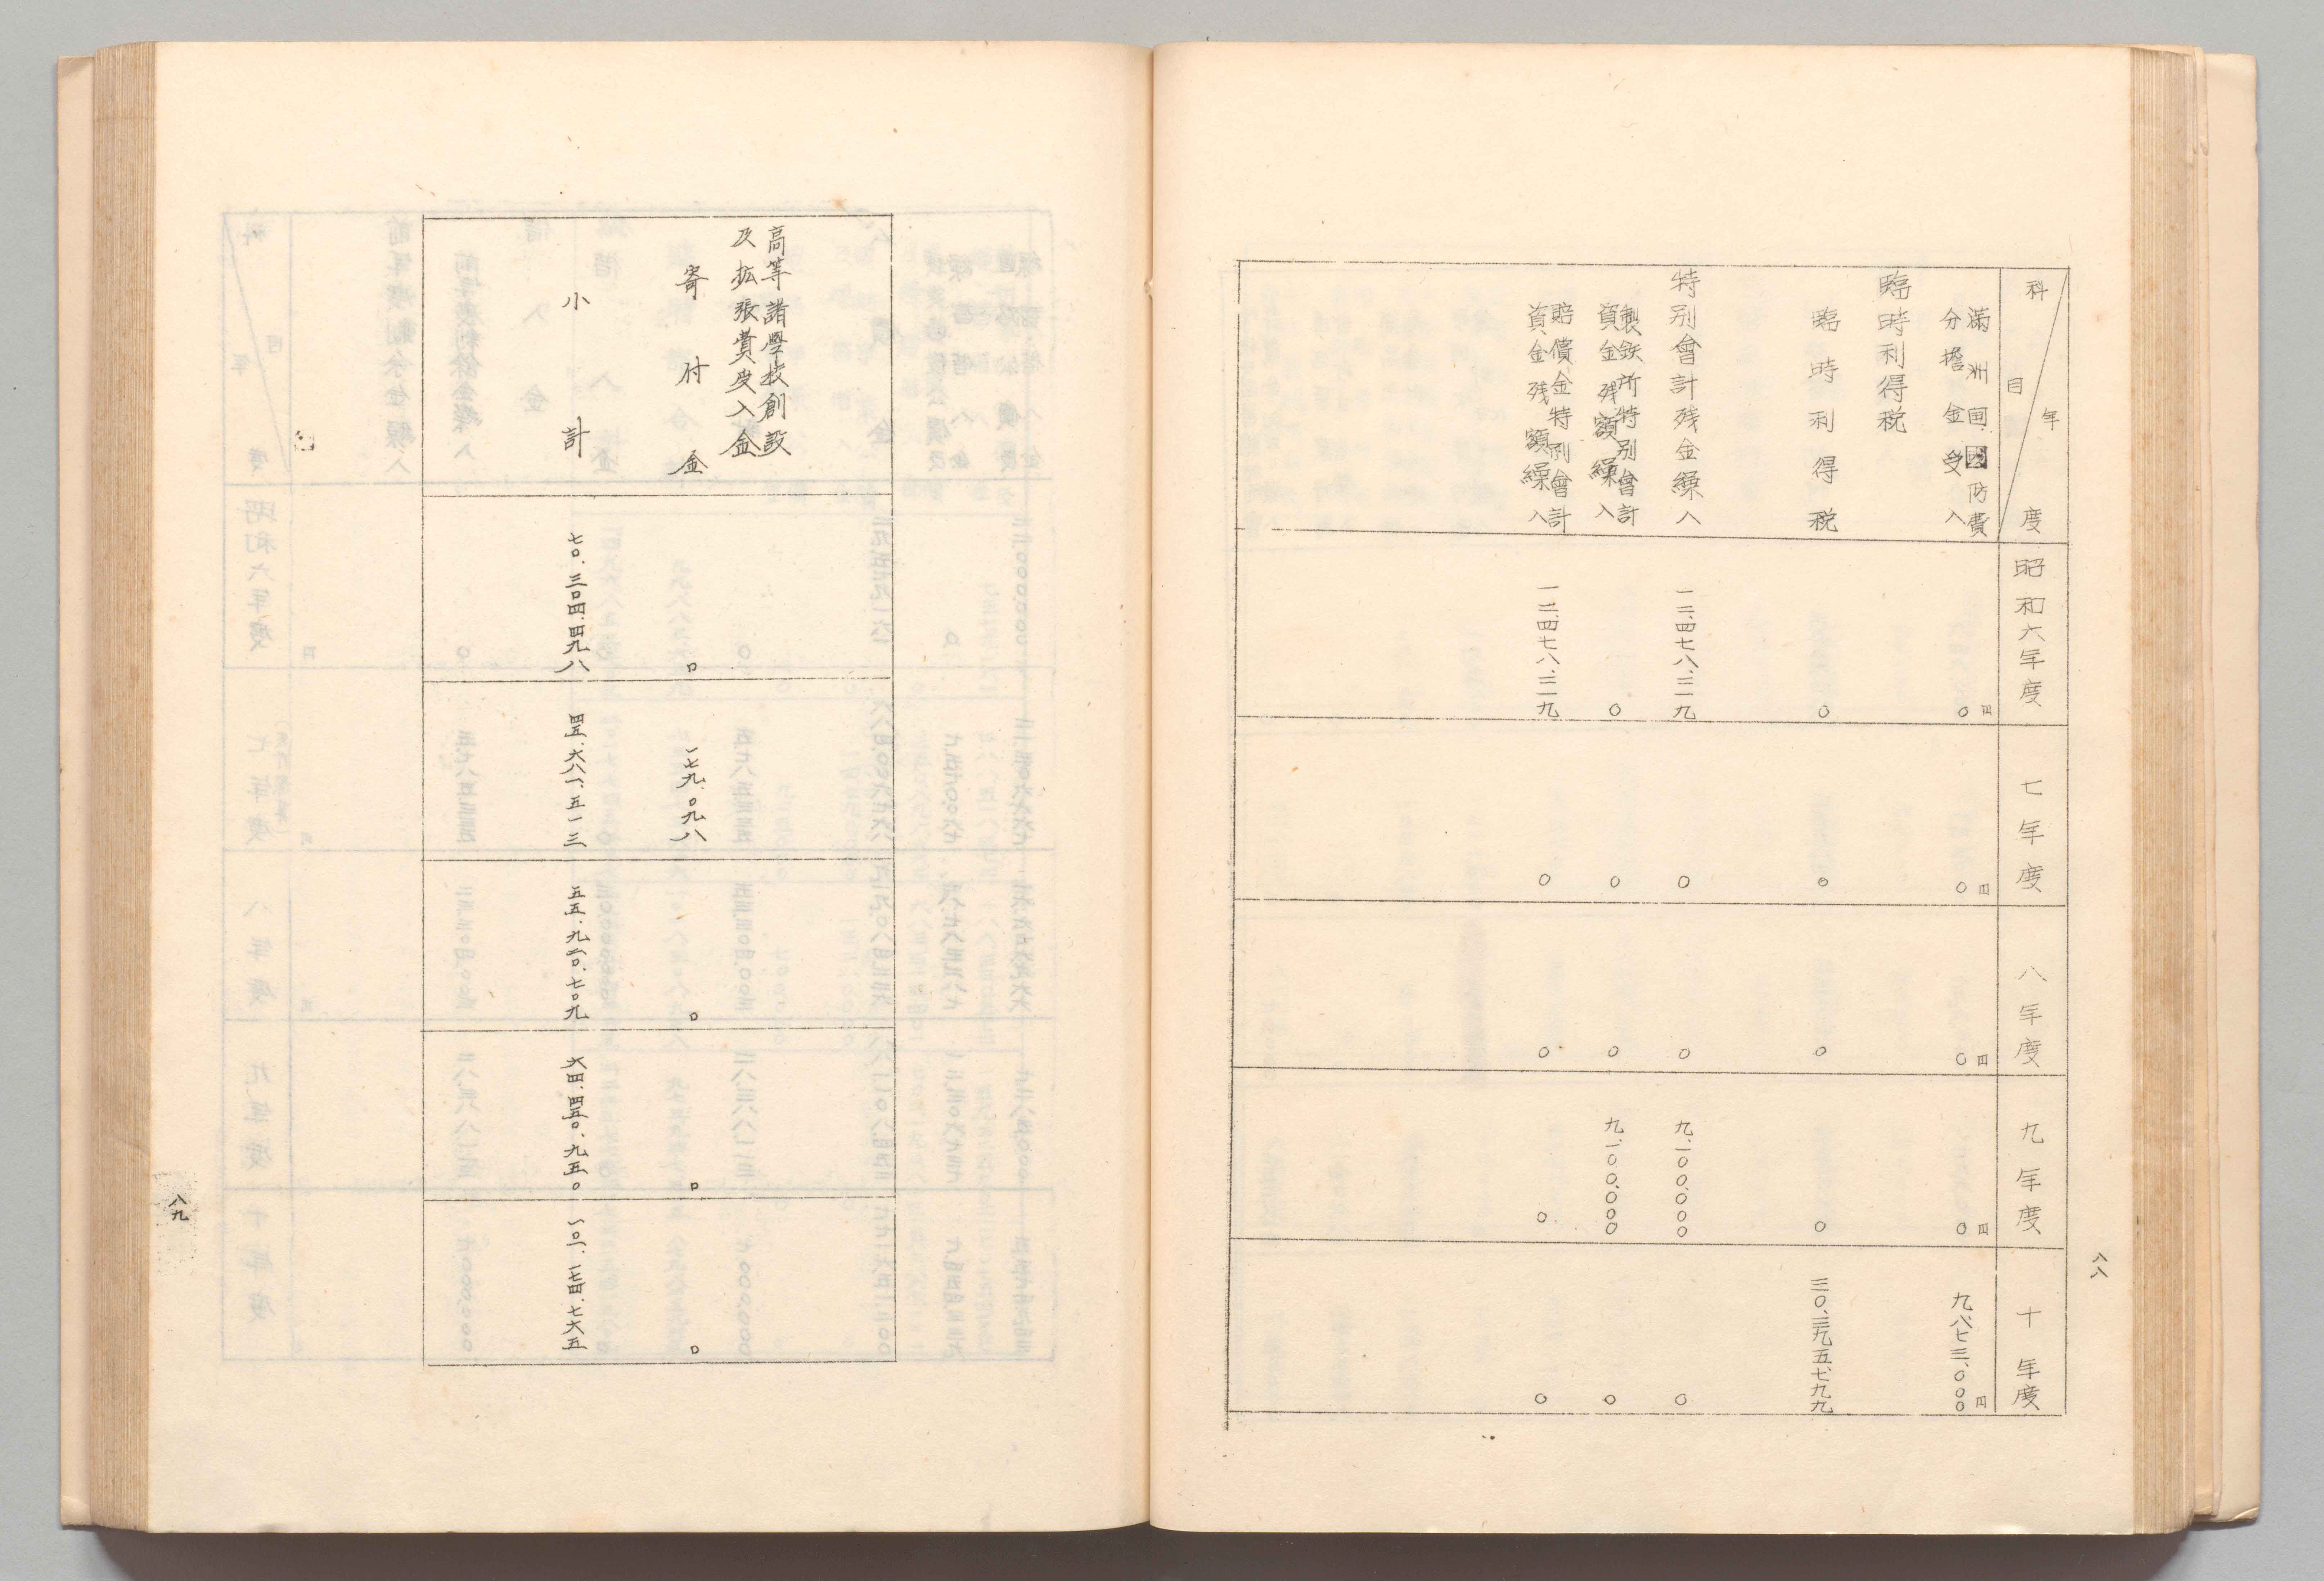 八八
科目 年度 昭和六年度 七年度 八年度 九年度 十年度
滿洲国國防費
分擔金受入 〇円 〇円 〇円 〇円 九、八七三、〇〇〇円
臨時利得税
臨時利得税 〇 〇 〇 〇 三〇、三九五、七九九
特別會計残金繰入 一二、四七八、三一九 〇 〇 九、一〇〇、〇〇〇 〇
製鉄所特別會計
資金残額繰入 〇 〇 〇 九、一〇〇、〇〇〇 〇
賠償金特別會計
資金残額繰入 一二、四七八、三一九 〇 〇 〇 〇
高等諸學校創設
及拡張費受入金
寄附金 〇 一七九、〇九八 〇 〇 〇
小計 七〇、三〇四、四九八 四五、六八一、五一三 五五、九二〇、七〇九 六四、四五〇、九五〇 一〇一、一七四、七六五
八九